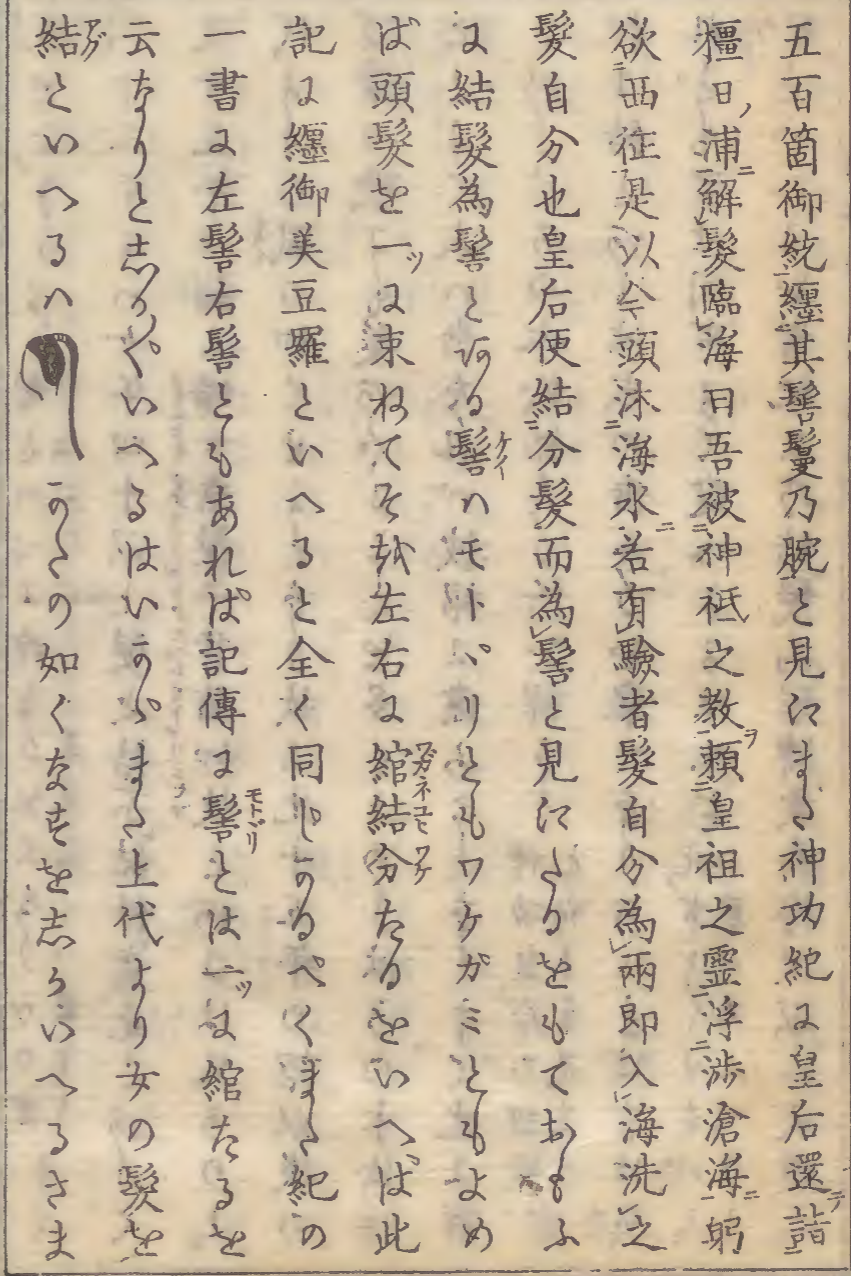 五百箇御統纏其髻鬘乃腕と見江また神功紀に皇后還詣
橿日ノ浦解髮臨海曰吾被神祇之教頼皇祖之霊浮渉滄海躬
欲西征是以今頭沐海水若有驗者髮自分為兩即入海洗之
髮自分也皇后便結分髮而為髻と見江たるをもておもふ
に結髮為髻とある髻ハモトヾリともワケガミともよめ
ば頭髮を一ッに束ねてそを左右に綰結分たるをいへば此
記に纏御美豆羅といへると全く同じかるべくまた紀の
一書に左髻右髻ともあれば記傳に髻とは一ッに綰たるを
云なりと志るくいへるはいかゞまた上代より女の髮を
結といへるハ かたの如くなすを志かいへるさま